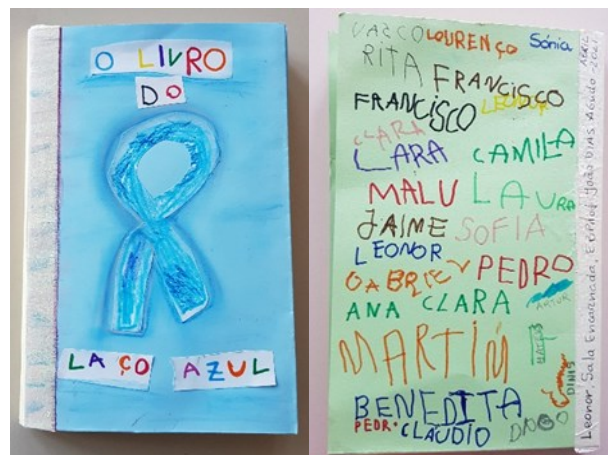 O LIVRO
DO
LAÇO AZUL
VASCO LOURENÇO Sónia
RITA FRANCISCO
FRANCISCO LEONOR
CLARA
LARA CAMILA
MALU LAURA
JAIME SOFIA
LEONOR
GABRIEL PEDRO
ANA CLARA ARTUR
MARTIM
DINIS
BENEDITA
PEDR. CLÁUDIO DIOGO
Leonor, Sala Encarnada, EB1/JI João Dias Agudo - 2021
ABRIL